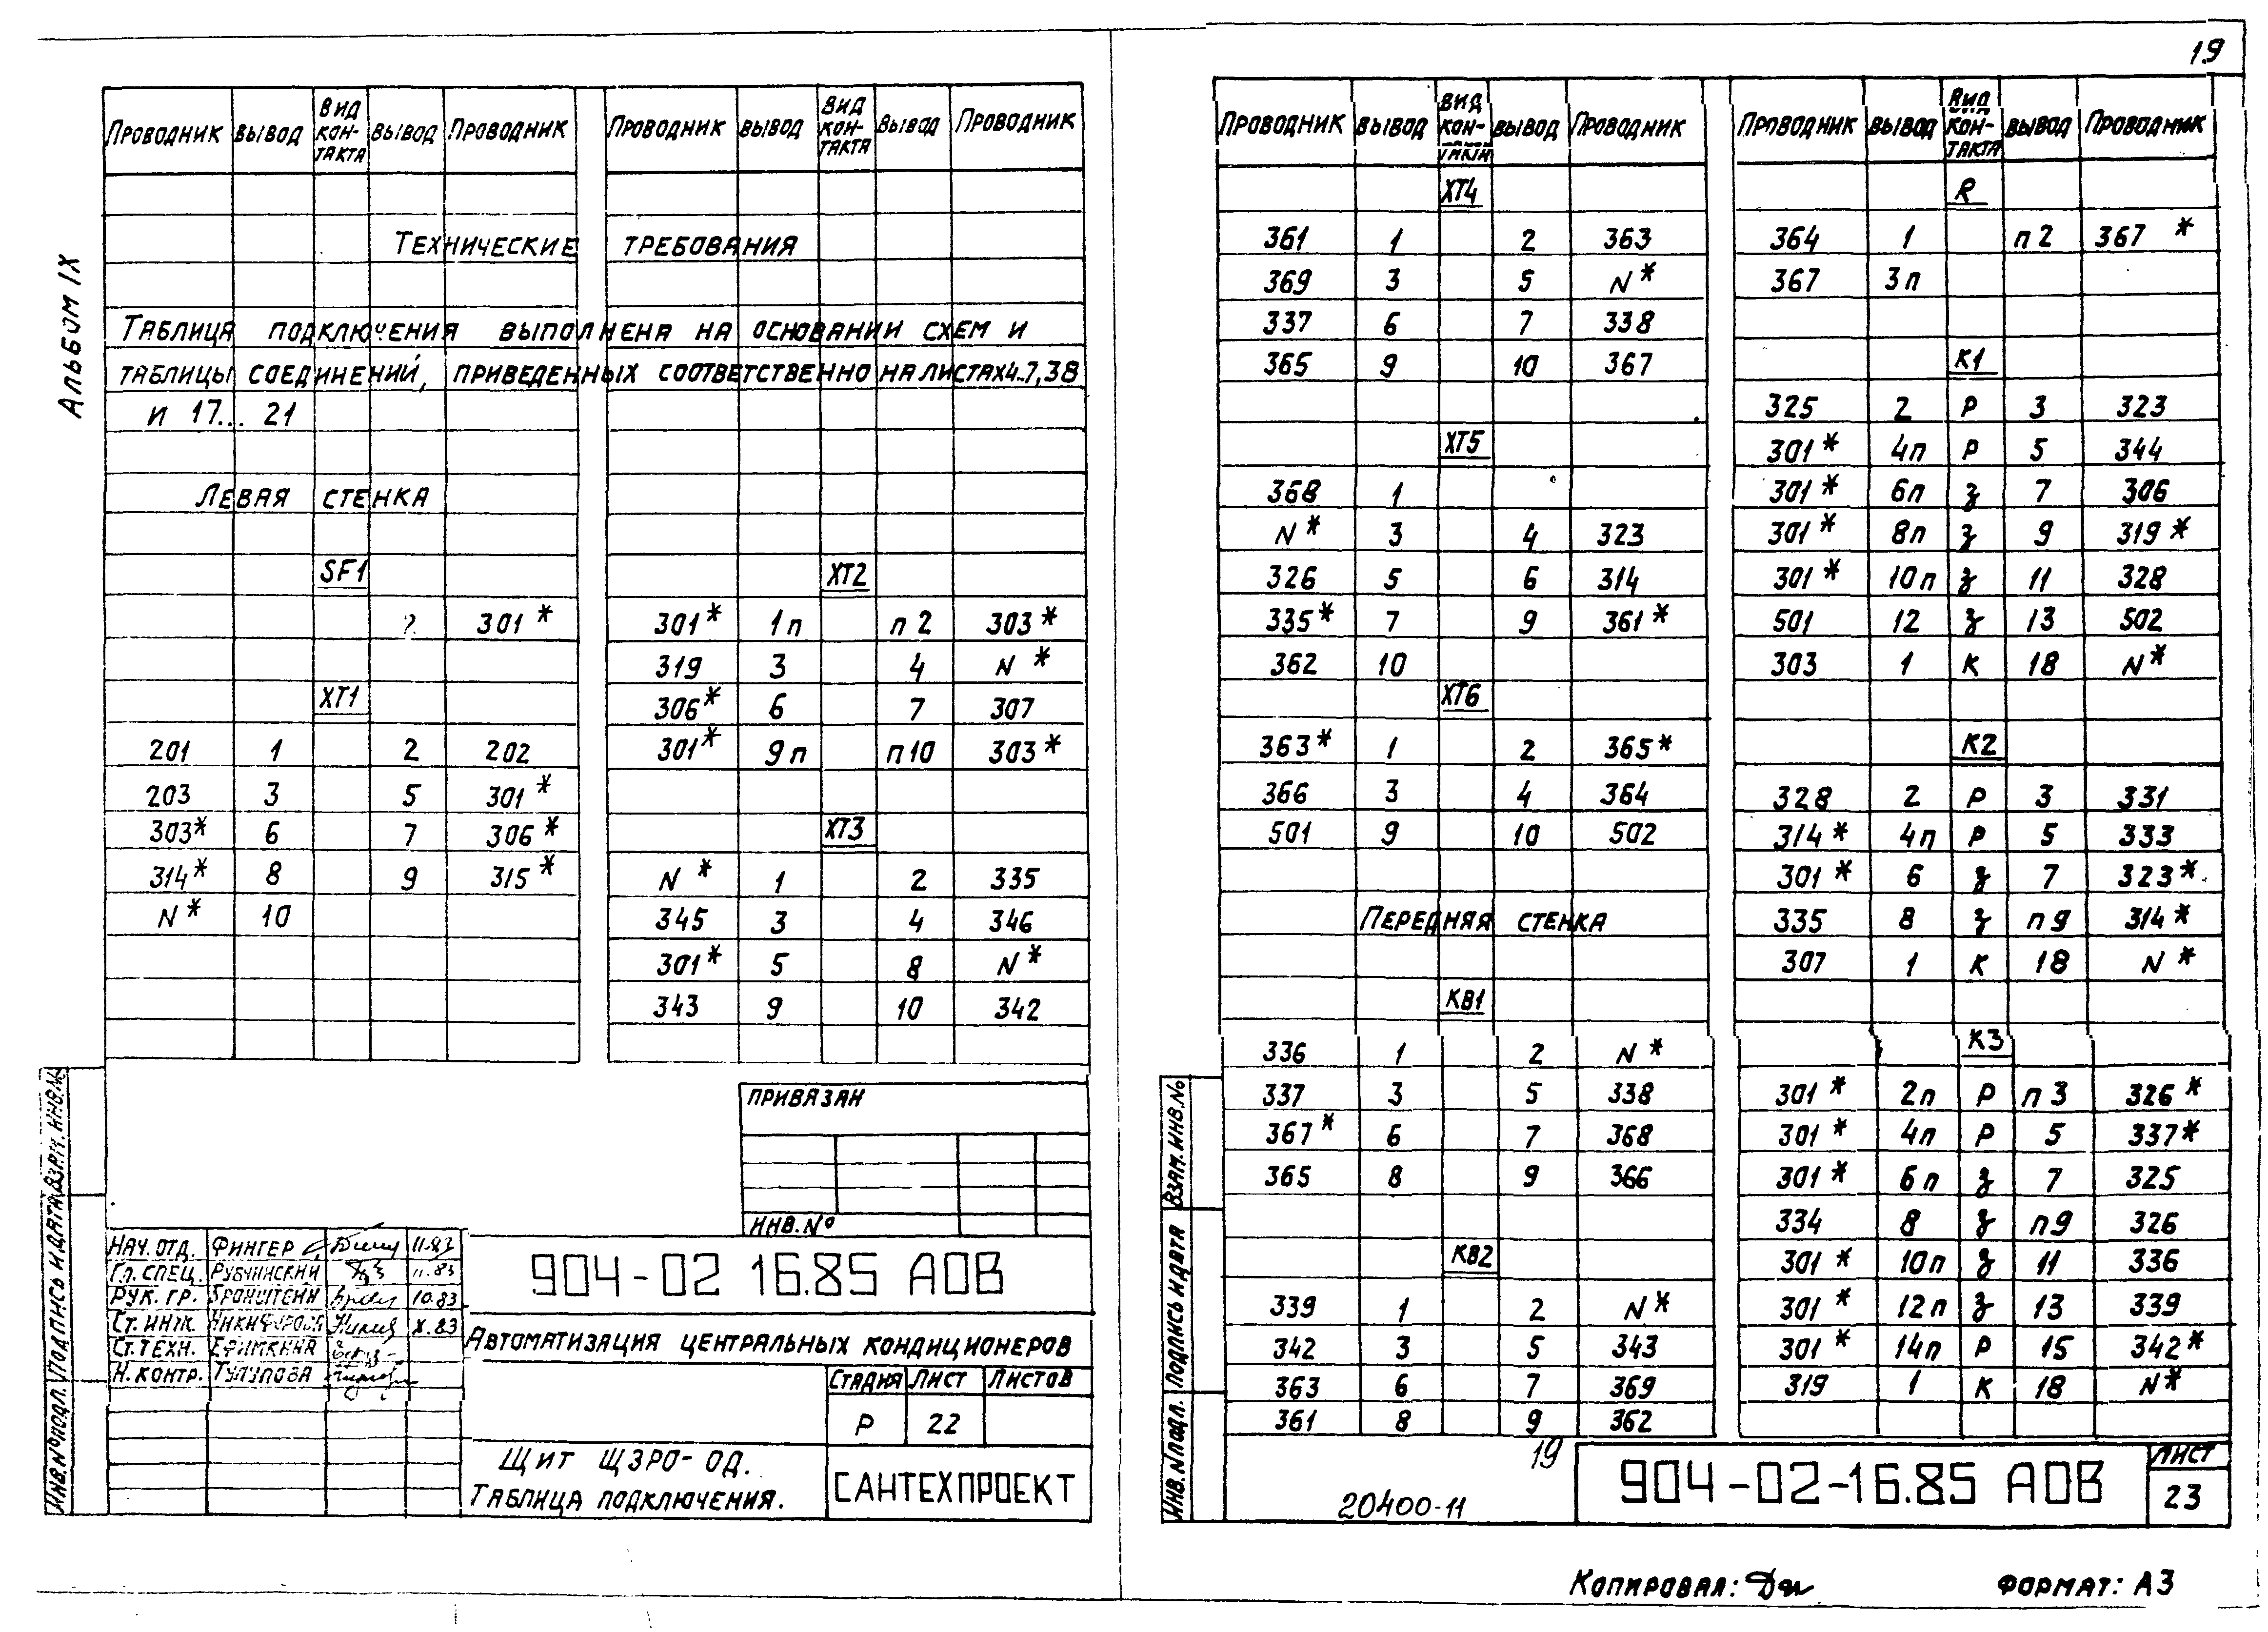 19
Альбом IX
Проводник Вывод Вид контакта Вывод Проводник
Технические требования
Таблица подключения выполнена на основании схем и
таблицы соединений, приведенных соответственно на листах 4..7, 38
и 17... 21
Левая стенка
SF1
2 301*
XT1
201 1 2 202
203 3 5 301*
303* 6 7 306*
314* 8 9 315*
N* 10
Проводник Вывод Вид контакта Вывод Проводник
XT2
301* 1п п2 303*
319 3 4 N*
306* 6 7 307
301* 9п п10 303*
XT3
N* 1 2 335
345 3 4 346
301* 5 8 N*
343 9 10 342
Привязан
Инв. №
Нач. отд. Фингер 11.83
Гл. спец. Рубчинский 11.83
Рук. гр. Бронштейн 10.83
Ст. инж. Никифорова X.83
Ст. техн. Ефимкина
Н. контр. Тулупова
904-02 16.85 АОВ
Автоматизация центральных кондиционеров
Стадия Лист Листов
Р 22
Щит ЩЗРО-ОД.
Таблица подключения.
САНТЕХПРОЕКТ
Инв. № подл. Подпись и дата Взам. инв. №
Проводник Вывод Вид контакта Вывод Проводник
XT4
361 1 2 363
369 3 5 N*
337 6 7 338
365 9 10 367
XT5
368 1
N* 3 4 323
326 5 6 314
335* 7 9 361*
362 10
XT6
363* 1 2 365*
366 3 4 364
501 9 10 502
Передняя стенка
КВ1
336 1 2 N*
337 3 5 338
367* 6 7 368
365 8 9 366
КВ2
339 1 2 N*
342 3 5 343
363 6 7 369
361 8 9 362
Проводник Вывод Вид контакта Вывод Проводник
R
364 1 п2 367*
367 3п
К1
325 2 Р 3 323
301* 4п Р 5 344
301* 6п з 7 306
301* 8п з 9 319*
301* 10п з 11 328
501 12 з 13 502
303 1 К 18 N*
К2
328 2 Р 3 331
314* 4п Р 5 333
301* 6 з 7 323*
335 8 з п9 314*
307 1 К 18 N*
К3
301* 2п Р п3 326*
301* 4п Р 5 337*
301* 6п з 7 325
334 8 з п9 326
301* 10п з 11 336
301* 12п з 13 339
301* 14п Р 15 342*
319 1 К 18 N*
Инв. № подл. Подпись и дата Взам. инв. №
19
20400-11
904-02-16.85 АОВ
Лист
23
Копировал:
Формат: А3